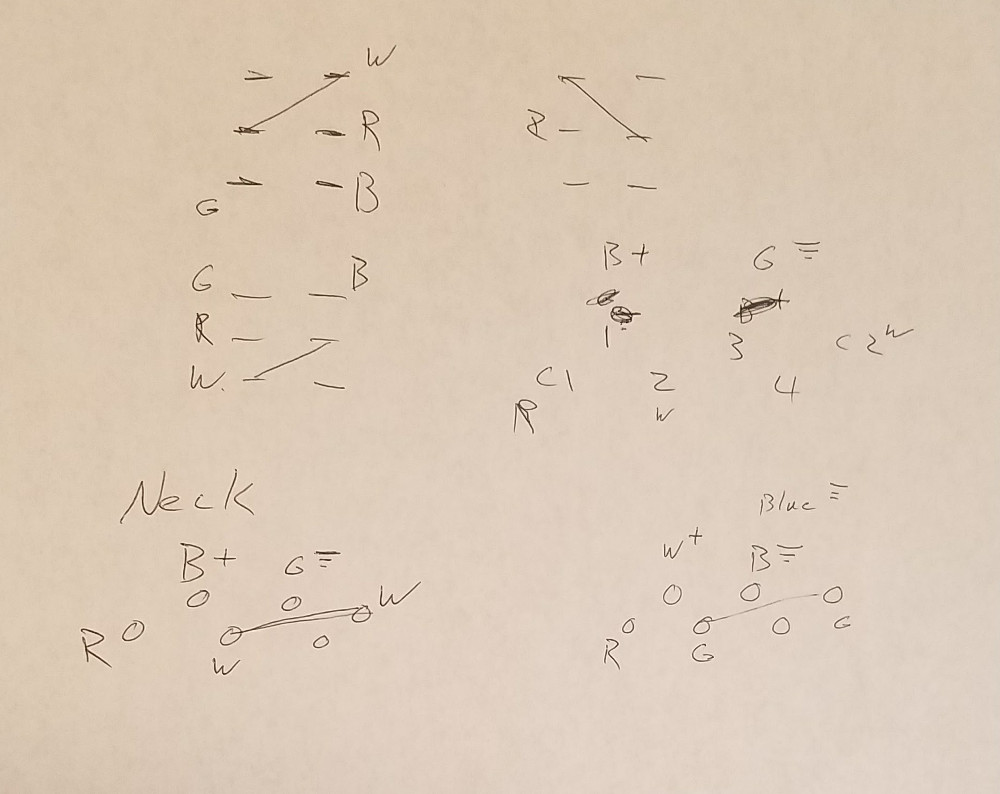 W
R
R
G
B
B+ G
G B
R
1 3 C2 W
W. C1 2 4
R W
Neck
Blue
B+ G W+ B
W
R R G G
W